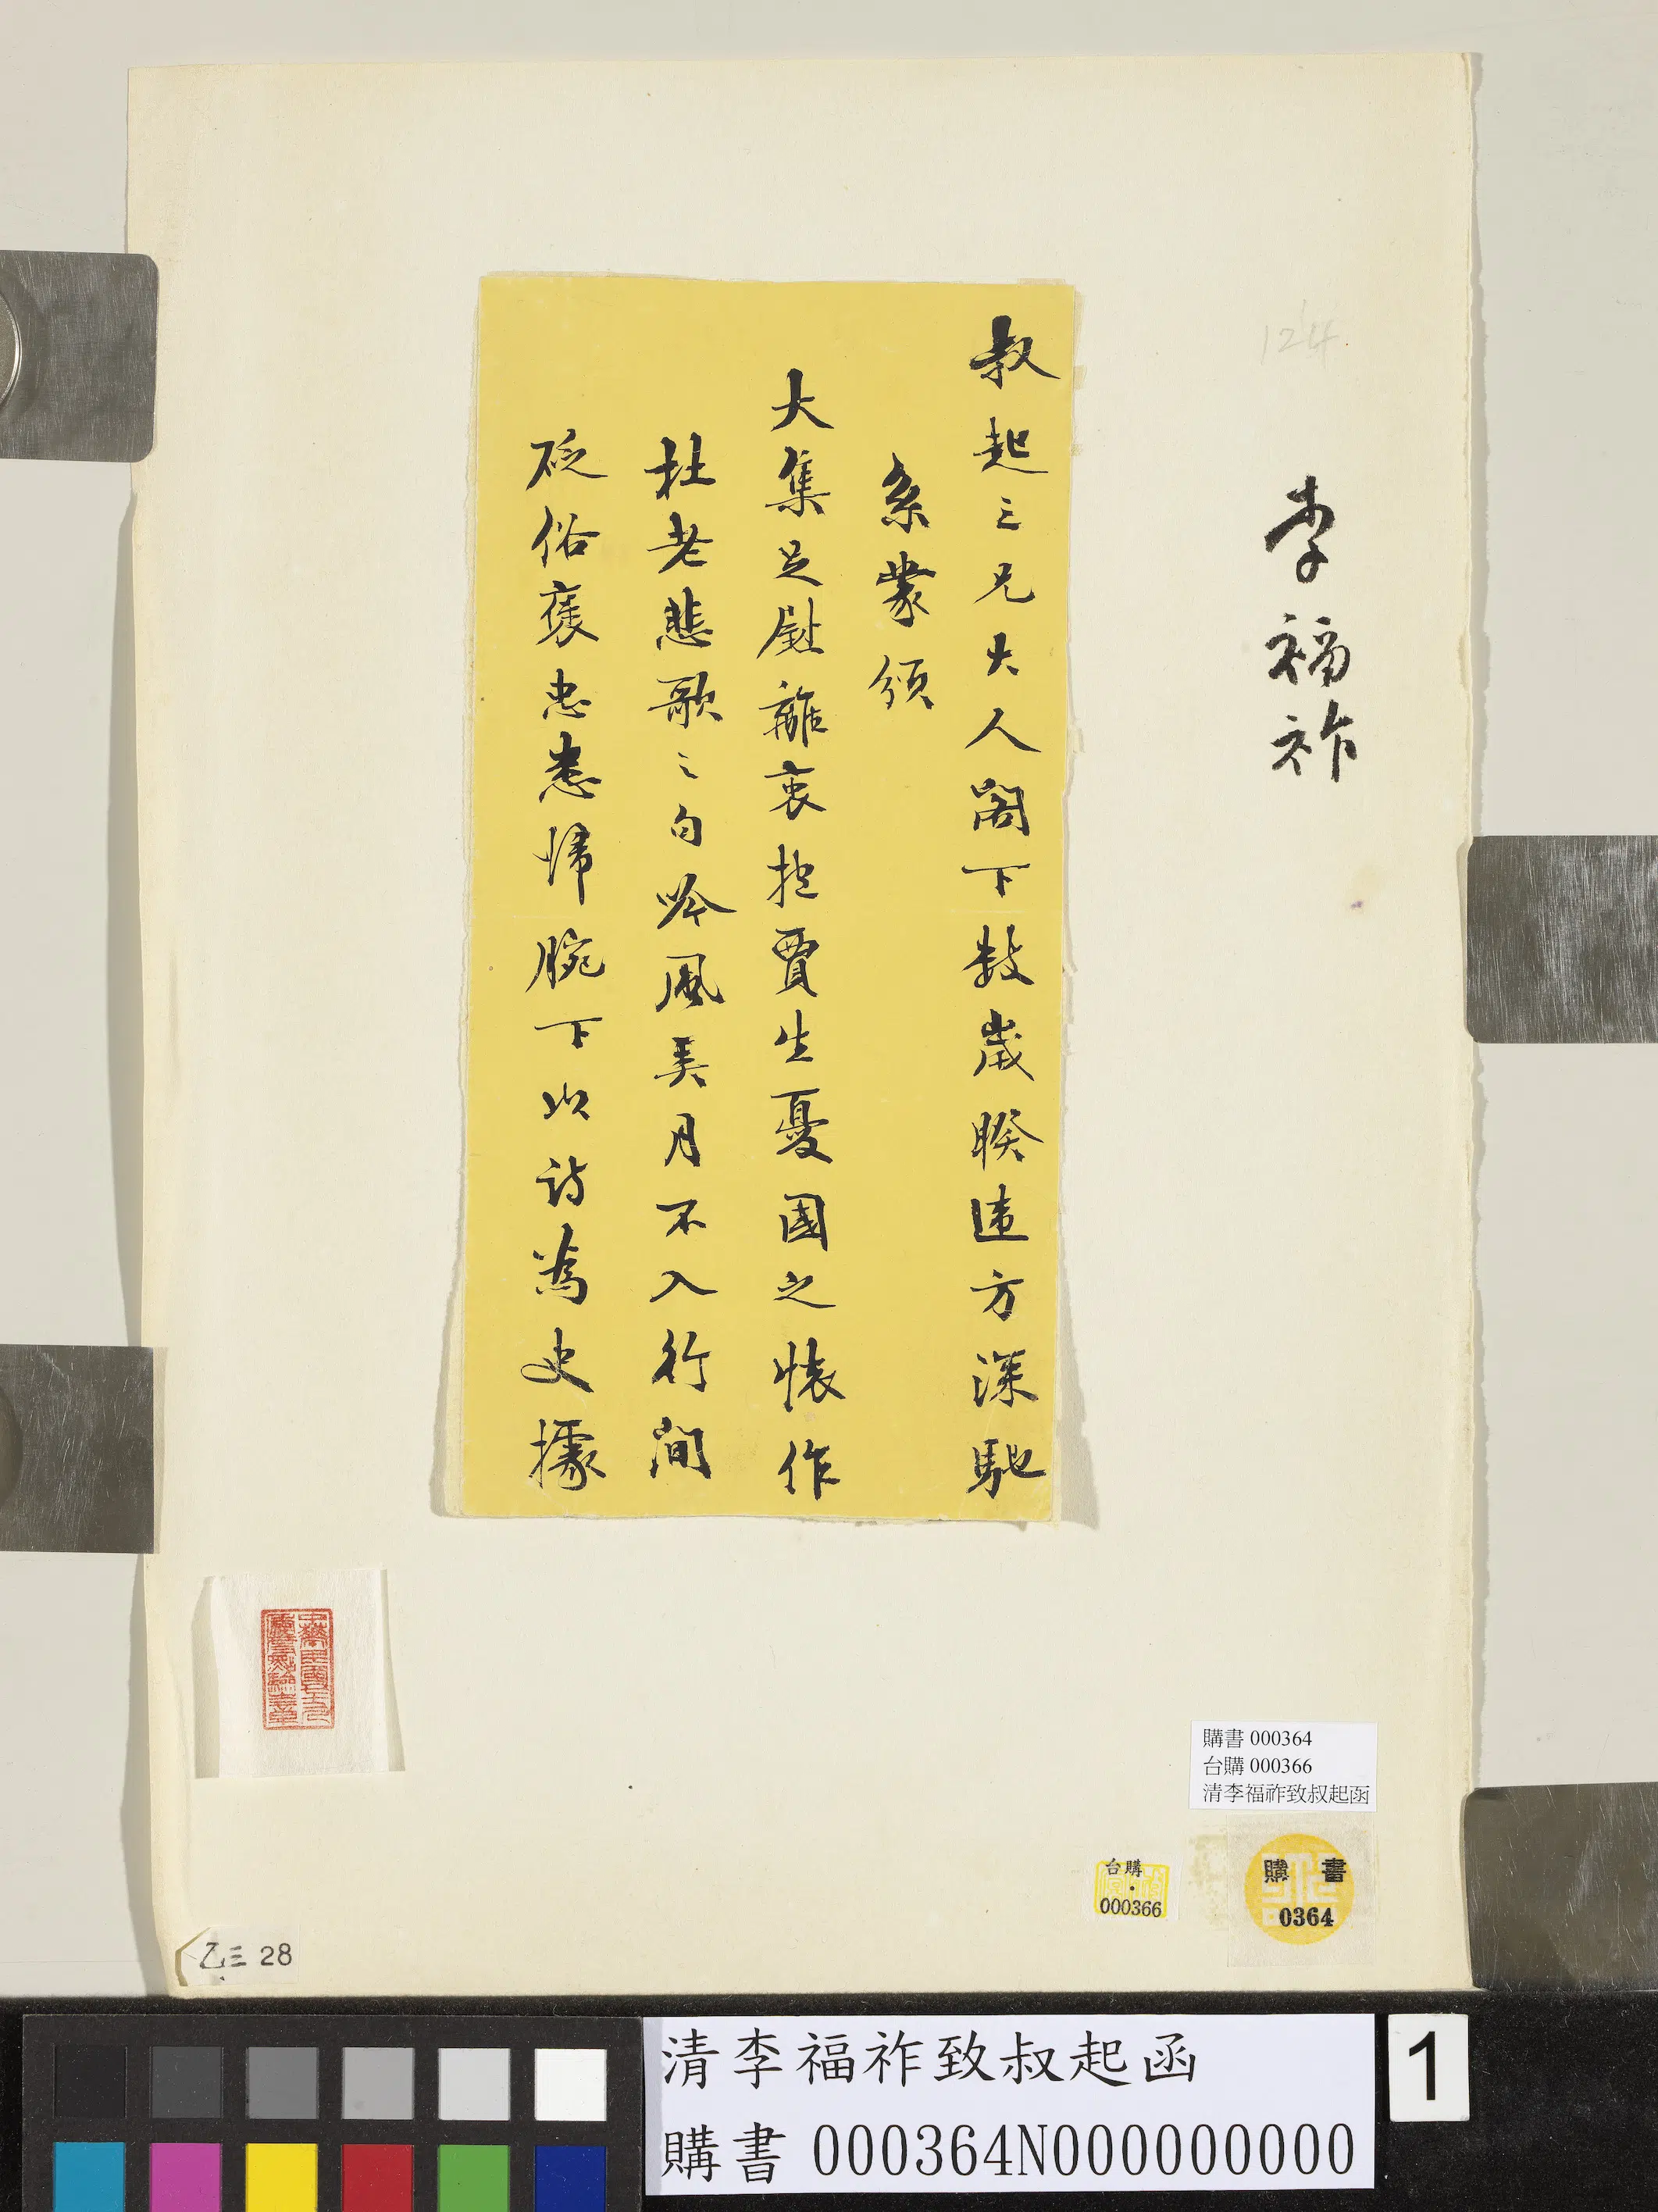 124
李福祚
叔起三兄大人閣下數歲睽違方深馳
系蒙頒
大集足慰離衷抱賈生憂國之懷作
杜老悲歌之句吟風弄月不入行間
砭俗褒忠悉歸腕下以詩為史據
購書 000364
台購 000366
清李福祚致叔起函
台購
000366
購 書
0364
乙三 28
清李福祚致叔起函
購書 000364N000000000
1